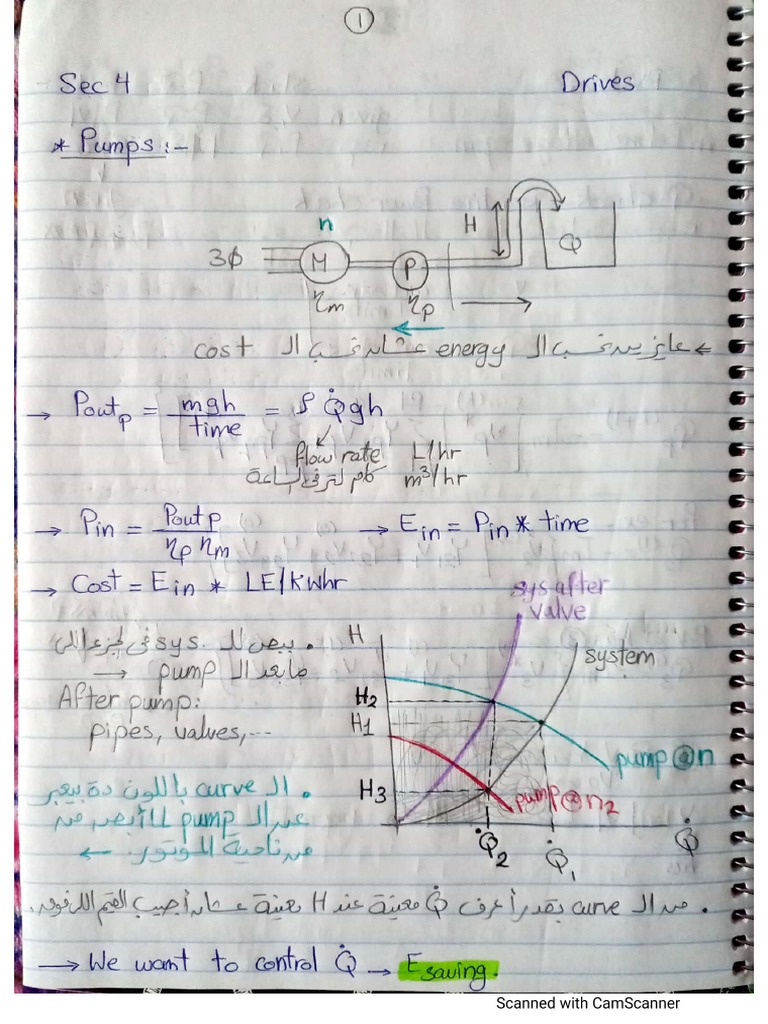 1
Sec 4 Drives
* Pumps :-
n
H
3Φ M P Q
ηm ηp
← عايزين نحسب ال energy عشان نحسب ال cost
→ Pout_p = mgh / time = ρ Q̇ gh
flow rate L/hr
كام لتر في الساعة m³/hr
→ Pin = Pout p / ηp ηm → E in = P in * time
→ Cost = E in * LE/kWhr
sys after
valve
H
system
• بيبص لل sys. في الجزء اللي
مابعد ال pump →
After pump:
pipes, valves, ...
H2
H1
pump @ n
H3
pump @ n2
• ال curve باللون دة بيعبر
عن ال pump لما أبص من
من ناحية الموتور ←
Q̇2 Q̇1 Q̇
• من ال curve بقدر أعرف Q̇ معينة عند H معينة عشان أجيب القيم اللي فوق.
→ We want to control Q̇ → E saving.
Scanned with CamScanner